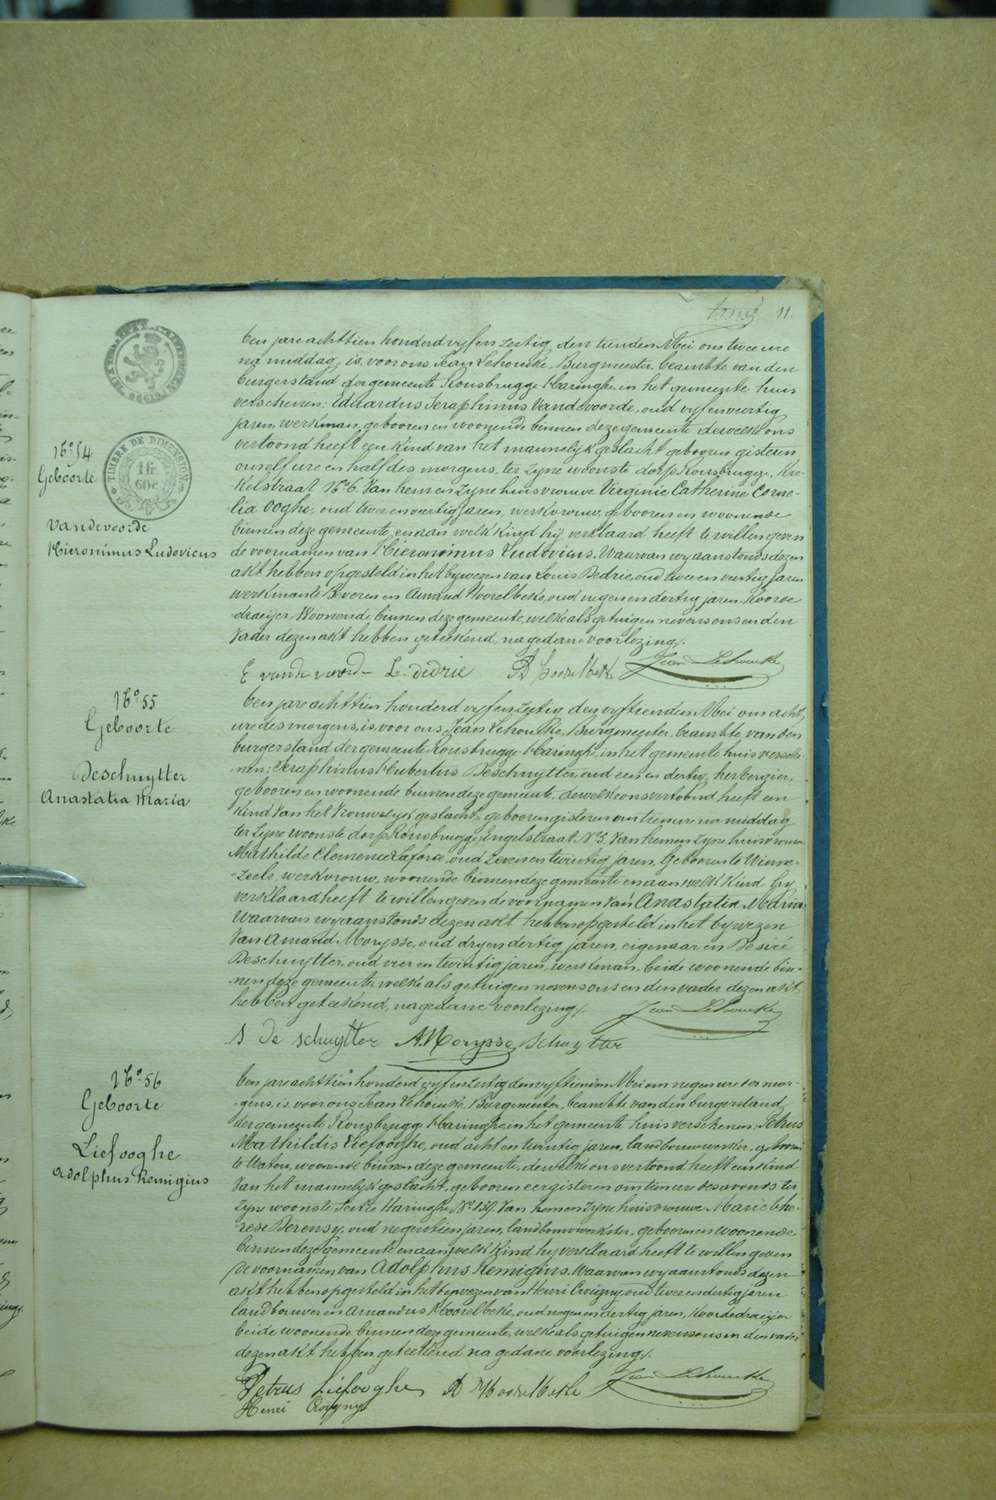 11.
TIMBRE DE DIMENSION
1 fr.
60 c.
Nº 54
Geboorte
Vandevoorde
Hieronimus Ludovicus
Een jare achttien honderd vyf en zestig, den tienden Mei om twee ure
na middag, is voor ons Jean Lehoucke, Burgmeester, beambte van den
burgerstand der gemeente Rousbrugge Haringhe in het gemeente huis
verschenen: Eduardus Seraphinus Vandevoorde, oud vyf en veertig
jaren, werkman, geboren en woonende binnen deze gemeente, dewelke ons
vertoond heeft een kind van het mannelyk geslacht, geboren gisteren
ten elf ure en half des morgens, ter zyne woonste dorp Rousbrugge,
Nº 6. Van hem en zyne huisvrouwe Virginie Catherine Corne-
lia Ooghe, oud twee en veertig jaren, werkvrouw, geboren en woonende
binnen deze gemeente, en aan welk kind hy verklaard heeft te willen geven
de voornamen van Hieronimus Ludovicus. Waarvan wy aanstonds dezen
akt hebben opgesteld in het bywezen van Louis Dedrie, oud twee en veertig jaren
werkman te Beveren en Amand Hoorelbeke, oud negen en dertig jaren, koorde
draeijer, Woonende binnen deze gemeente, welke als getuigen nevens ons en den
Vader dezen akt hebben geteekend, na gedane voorlezing/.
L. dedrie
Jean Lehoucke
Nº 55
Geboorte
Deschuytter
Anastatia Maria
Een jare achttien honderd vyf en zestig den vyftienden Mei om acht
ure des morgens, is voor ons Jean Lehoucke, Burgmeester, beambte van den
burgerstand der gemeente Rousbrugge Haringhe, in het gemeente huis versche-
nen: Seraphinus Hubertus Deschuytter, oud een en dertig, herbergier,
geboren en woonende binnen deze gemeente, dewelke ons vertoond heeft een
kind van het Vrouwelyk geslacht, geboren gisteren om tien ure na middag
ter zyne woonste dorp Rousbrugge, Engelstraat Nº 3, Van hem en zyne huisvrouw
Mathilde Clemence Laforce, oud zeven en twintig jaren, Geboren te Winne-
zeele, werkvrouw, woonende binnen deze gemeente en aan welk kind hy
verklaard heeft te willen geven de voornamen van Anastatia Maria
Waarvan wy aanstonds dezen akt hebben opgesteld in het bywezen
Van Amand Morysse, oud dry en dertig jaren, eigenaar en Desiré
Deschuytter, oud vier en twintig jaren, werkman, beide woonende bin-
nen deze gemeente, welke als getuigen nevens ons en den vader dezen akt
hebben geteekend, na gedane voorlezing/. Jean Lehoucke
S De Schuytter A. Morysse Schuytter
Nº 56
Geboorte
Liefooghe
Adolphus Remigius
Een jare achttien honderd vyf en zestig den vyftienden Mei om negen ure des mor-
gens, is voor ons Jean Lehoucke, Burgmeester, beambte van den burgerstand
der gemeente Rousbrugge Haringhe in het gemeente huis verschenen: Petrus
Mathildis Liefooghe, oud acht en twintig jaren, landbouwwerker, geboren
te Watou, woonende binnen deze gemeente, dewelke ons vertoond heeft een kind
Van het mannelyk geslacht, geboren eergisteren om tien ure des avonds ter
zyne woonste Haringhe Van hem en zyne huisvrouwe Marie The-
rese Berensy, oud negentien jaren, landbouwwerkster, geboren en woonende
binnen deze gemeente en aan welk kind hy verklaard heeft te willen geven
de voornamen van Adolphus Remigius. Waarvan wy aanstonds dezen
akt hebben opgesteld in het bywezen van Henri Croigny, oud twee en dertig jaren
landbouwer en Amandus Hoorelbeke, oud negen en dertig jaren, Koordedraeijer
beide woonende binnen deze gemeente, welke als getuigen nevens ons en den vader
dezen akt hebben geteekend na gedane voorlezing/.
Petrus Liefooghe A Hoorelbeke Jean Lehoucke
Henri Croigny